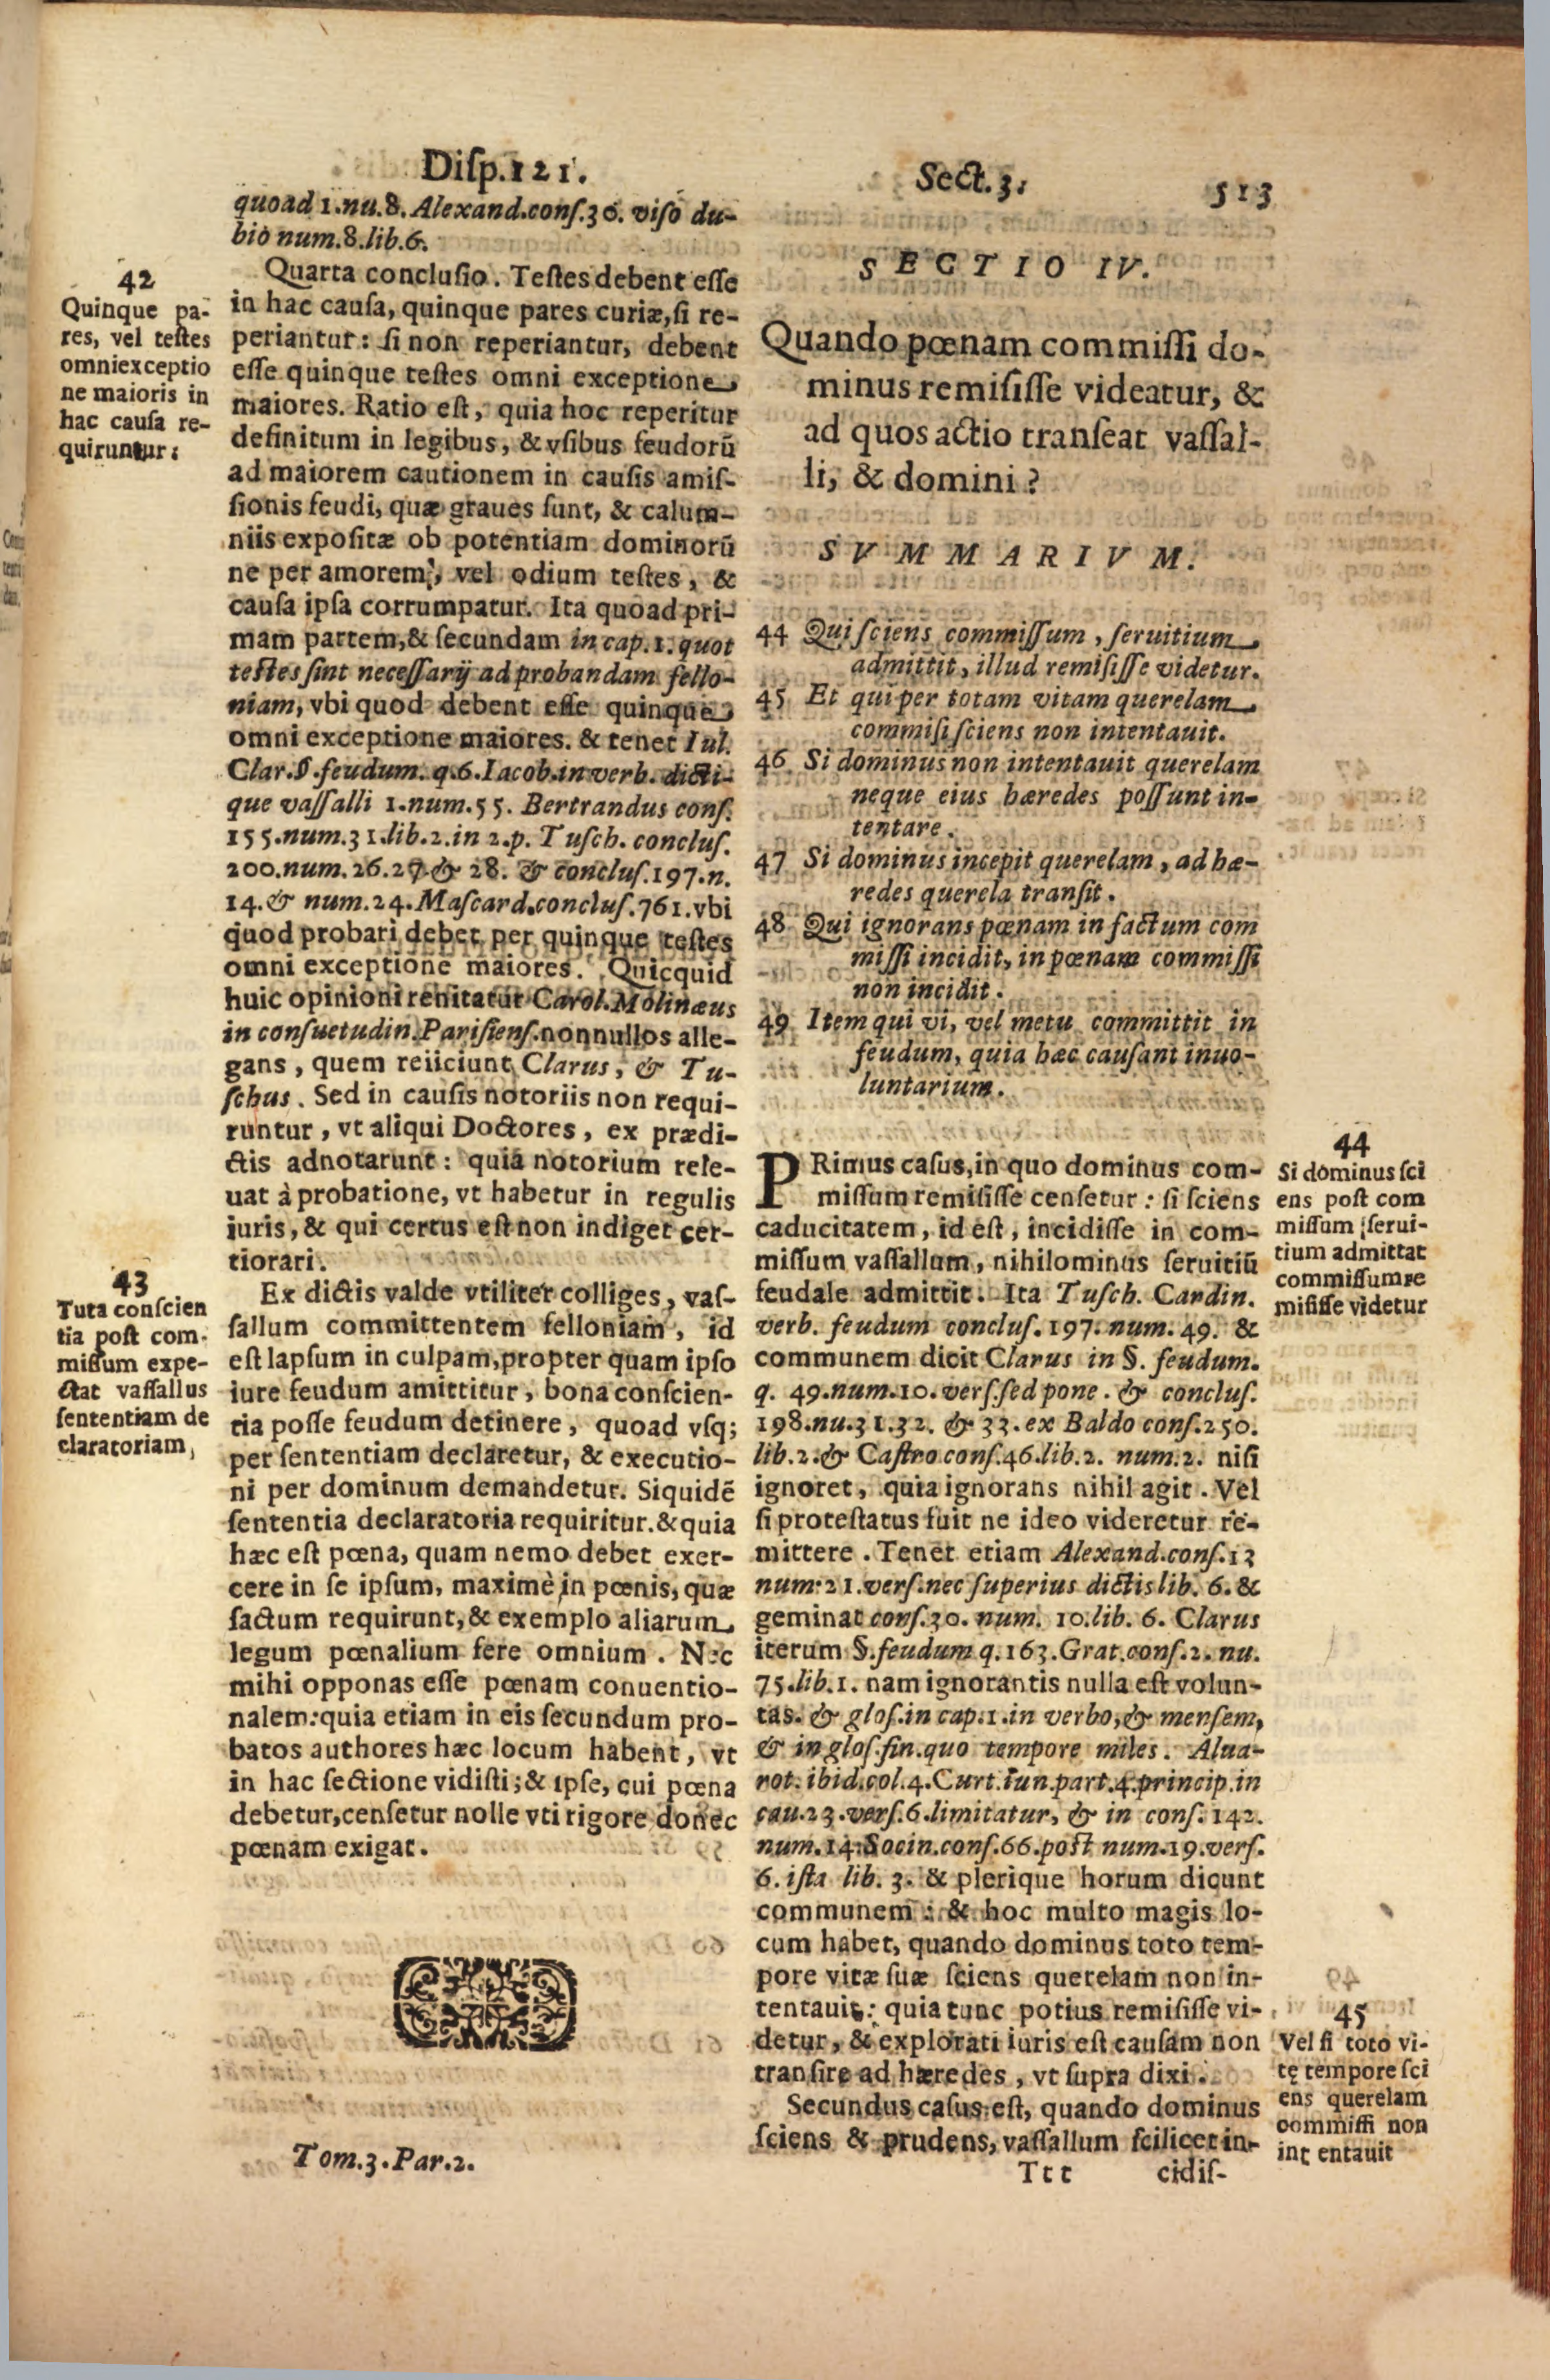 Diſp.121.
Sect.3.
513
quoad 1.nu.8. Alexand.conſ.30. viſo du-
bio num.8.lib.6.
42
Quinque pa-
res, vel teſtes
omniexceptio
ne maioris in
hac cauſa re-
quiruntur:
Quarta concluſio. Teſtes debent eſſe
in hac cauſa, quinque pares curiæ,ſi re-
periantur: ſi non reperiantur, debent
eſſe quinque teſtes omni exceptione
maiores. Ratio eſt, quia hoc reperitur
definitum in legibus, & vſibus feudorū
ad maiorem cautionem in cauſis amiſ-
ſionis feudi, quæ graues ſunt, & calum-
niis expoſitæ ob potentiam dominorū
ne per amorem, vel odium teſtes, &
cauſa ipſa corrumpatur. Ita quoad pri-
mam partem,& ſecundam in cap.1.quot
teſtes ſint neceſſarij ad probandam fello-
niam, vbi quod debent eſſe quinque
omni exceptione maiores. & tenet Iul.
Clar.§.feudum. q.6.Iacob.in verb. dicti-
que vaſſalli 1.num.55. Bertrandus conſ.
155.num.31.lib.2.in 2.p. Tuſch. concluſ.
200.num.26.27.& 28. & concluſ.197.n.
14.& num.24.Maſcard.concluſ.761.vbi
quod probari debet per quinque teſtes
omni exceptione maiores. Quicquid
huic opinioni renitatur Carol.Molinæus
in conſuetudin.Pariſienſ.nonnullos alle-
gans, quem reiiciunt Clarus, & Tu-
ſchus. Sed in cauſis notoriis non requi-
runtur, vt aliqui Doctores, ex prædi-
ctis adnotarunt: quia notorium rele-
uat à probatione, vt habetur in regulis
iuris, & qui certus eſt non indiget cer-
tiorari.
43
Tuta conſcien
tia poſt com-
miſſum expe-
ctat vaſſallus
ſententiam de
claratoriam,
Ex dictis valde vtiliter colliges, vaſ-
ſallum committentem felloniam, id
eſt lapſum in culpam,propter quam ipſo
iure feudum amittitur, bona conſcien-
tia poſſe feudum detinere, quoad vſq;
per ſententiam declaretur, & executio-
ni per dominum demandetur. Siquidē
ſententia declaratoria requiritur.& quia
hæc eſt pœna, quam nemo debet exer-
cere in ſe ipſum, maximè in pœnis, quæ
factum requirunt,& exemplo aliarum
legum pœnalium fere omnium. Nec
mihi opponas eſſe pœnam conuentio-
nalem:quia etiam in eis ſecundum pro-
batos authores hæc locum habent, vt
in hac ſectione vidiſti;& ipſe, cui pœna
debetur,cenſetur nolle vti rigore donec
pœnam exigat.
Tom.3.Par.2.
SECTIO IV.
Quando pœnam commiſſi do-
minus remiſiſſe videatur, &
ad quos actio tranſeat vaſſal-
li, & domini?
SVMMARIVM.
44 Qui ſciens commiſſum, ſeruitium
admittit, illud remiſiſſe videtur.
45 Et qui per totam vitam querelam
commiſi ſciens non intentauit.
46 Si dominus non intentauit querelam
neque eius hæredes poſſunt in-
tentare.
47 Si dominus incepit querelam, ad hæ-
redes querela tranſit.
48 Qui ignorans pœnam in factum com
miſſi incidit, in pœnam commiſſi
non incidit.
49 Item qui vi, vel metu committit in
feudum, quia hæc cauſant inuo-
luntarium.
PRimus caſus,in quo dominus com-
miſſum remiſiſſe cenſetur: ſi ſciens
caducitatem, id eſt, incidiſſe in com-
miſſum vaſſallum, nihilominus ſeruitiū
feudale admittit. Ita Tuſch. Cardin.
verb. feudum concluſ.197.num.49. &
communem dicit Clarus in §. feudum.
q. 49.num.10.verſ.ſed pone. & concluſ.
198.nu.31.32. & 33.ex Baldo conſ.250.
lib.2.& Caſtro conſ.46.lib.2. num.2. niſi
ignoret, quia ignorans nihil agit. Vel
ſi proteſtatus fuit ne ideo videretur re-
mittere. Tenet etiam Alexand.conſ.13
num.21.verſ.nec ſuperius dictis lib. 6. &
geminat conſ.30. num. 10.lib. 6. Clarus
iterum §.feudum q.163.Grat.conſ.2. nu.
75.lib.1. nam ignorantis nulla eſt volun-
tas. & gloſ.in cap.1.in verbo,& menſem,
& in gloſ.fin.quo tempore miles. Alua-
rot. ibid.col.4.Curt.iun.part.4.princip.in
cau.23.verſ.6.limitatur, & in conſ.142.
num.14.Socin.conſ.66.poſt num.19.verſ.
6. iſta lib. 3. & plerique horum dicunt
communem: & hoc multo magis lo-
cum habet, quando dominus toto tem-
pore vitæ ſuæ ſciens querelam non in-
tentauit: quia tunc potius remiſiſſe vi-
detur, & explorati iuris eſt cauſam non
tranſire ad hæredes, vt ſupra dixi.
Secundus caſus eſt, quando dominus
ſciens & prudens, vaſſallum ſcilicet in-
Ttt
cidiſ-
44
Si dominus ſci
ens poſt com
miſſum ſerui-
tium admittat
commiſſum re
miſiſſe videtur
45
Vel ſi toto vi-
tę tempore ſci
ens querelam
commiſſi non
intentauit